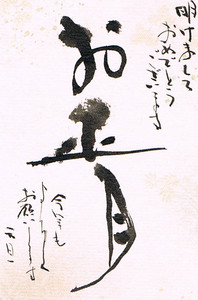 明けまして
おめでとう
ございます
お正月
今年も
よろしく
お願いします
一月一日